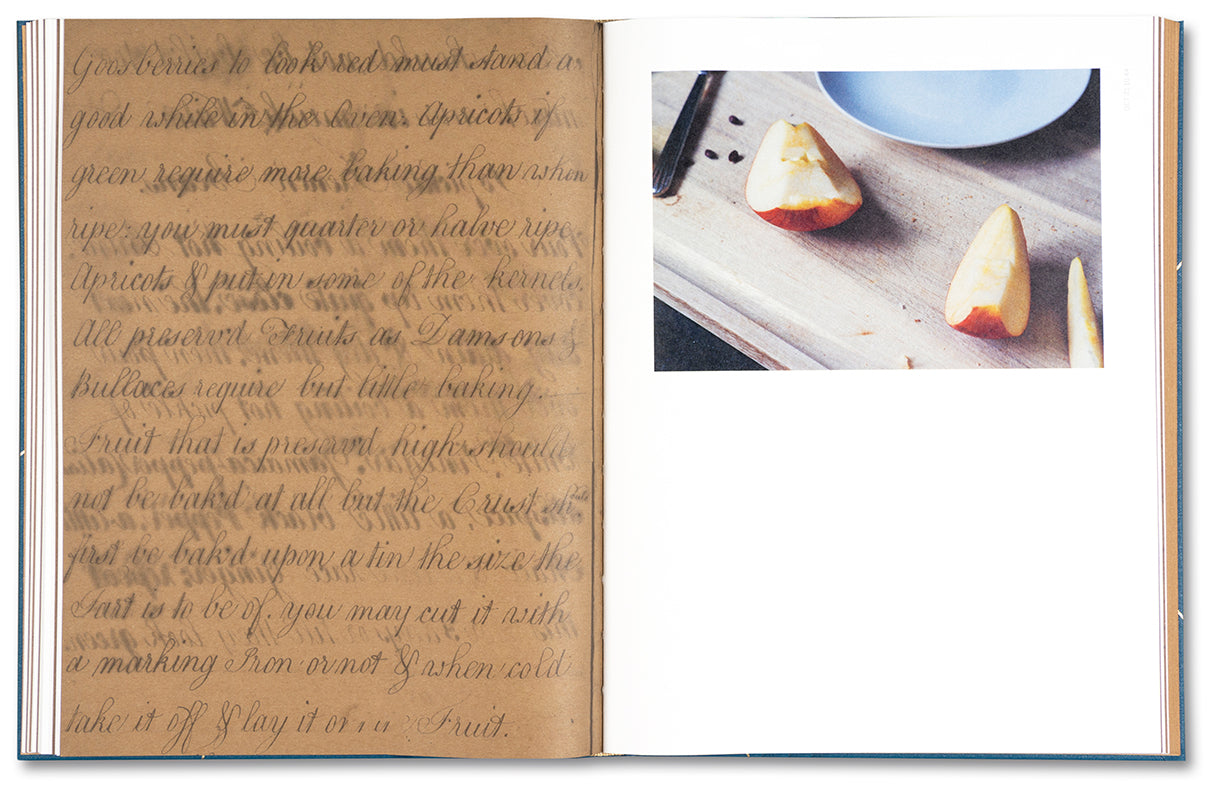 Goosberries to look red must stand a
good while in the Oven: Apricots if
green require more baking than when
ripe: you must quarter or halve ripe
Apricots & put in some of the kernels.
All preserv'd Fruits as Damsons &
Bullaces require but little baking.
Fruit that is preserv'd high should
not be bak'd at all but the Crust shd.
first be bak'd upon a tin the size the
Tart is to be of. you may cut it with
a marking Iron or not & when cold
take it off & lay it on Fruit.